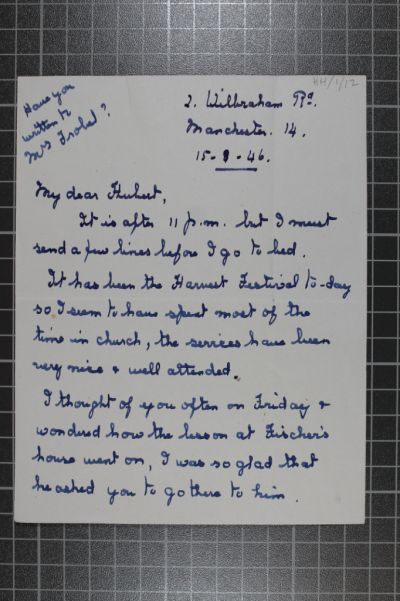 HH/1/12
Have you
written to
Mrs Frobel?
2. Wilbraham Rd.
Manchester. 14.
15-9-46.
My dear Hubert,
It is after 11 p.m. but I must
send a few lines before I go to bed.
It has been the Harvest Festival to-day
so I seem to have spent most of the
time in church, the services have been
very nice & well attended.
I thought of you often on Friday &
wondred how the lesson at Fischer's
house went on, I was so glad that
he asked you to go there to him.